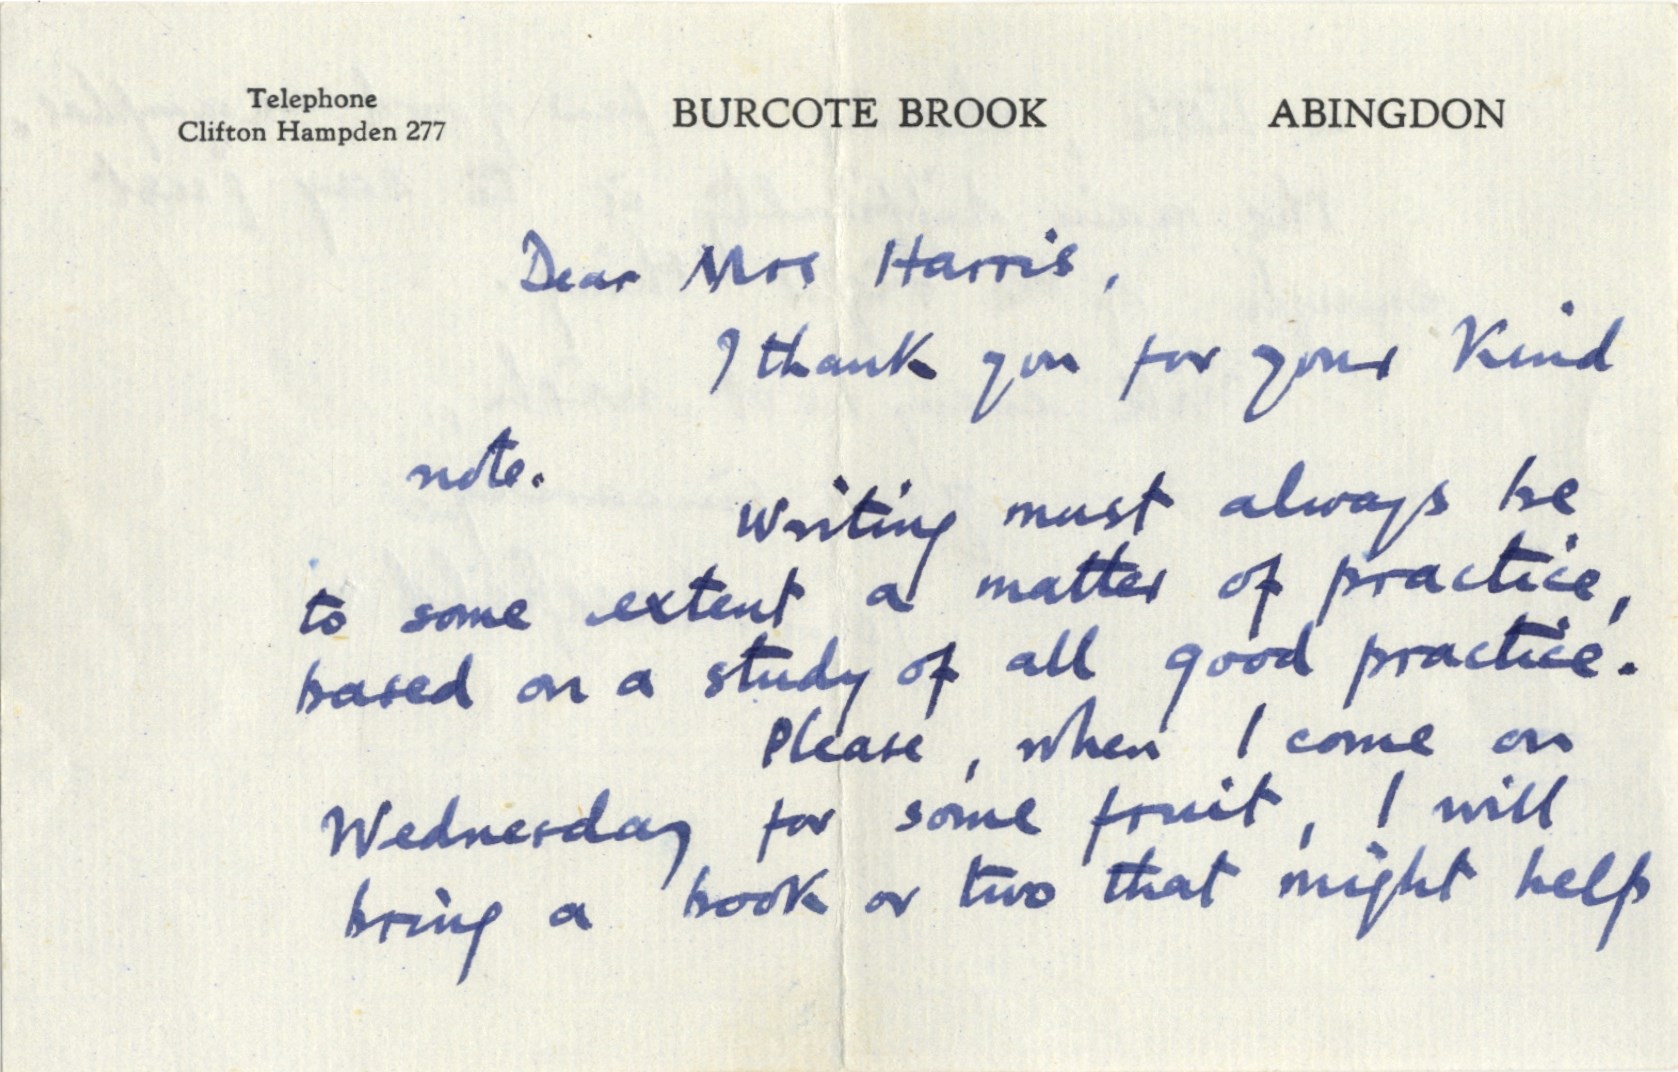 Telephone
Clifton Hampden 277
BURCOTE BROOK
ABINGDON
Dear Mrs Harris,
I thank you for your kind
note.
Writing must always be
to some extent a matter of practice,
based on a study of all good practice.
Please, when I come on
Wednesday for some fruit, I will
bring a book or two that might help